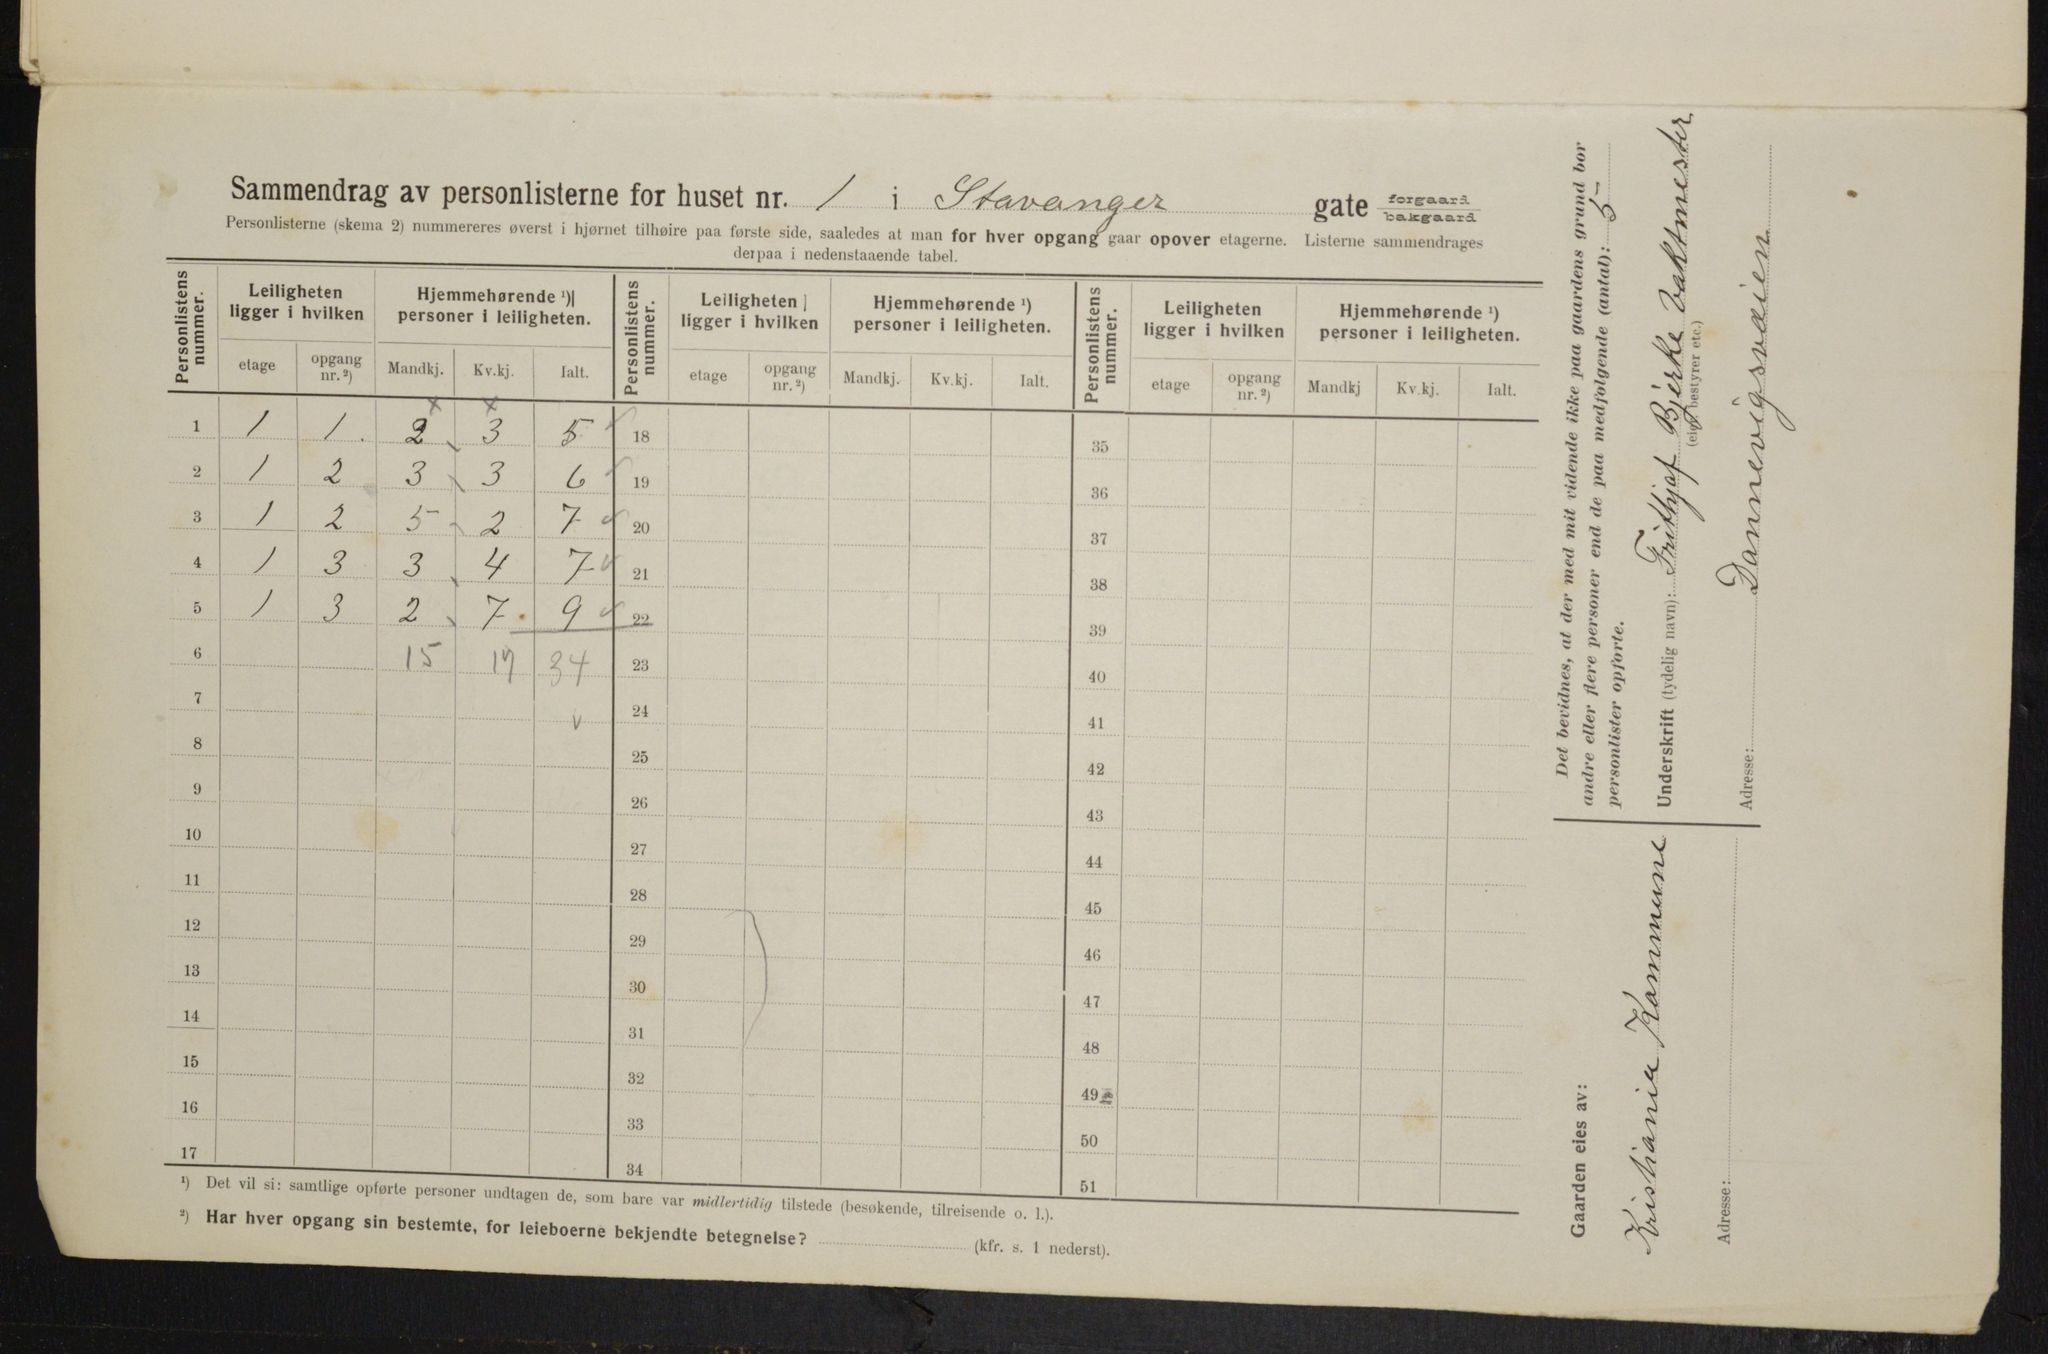 Sammendrag av personlisterne for huset nr. 1 i Stavanger gate forgaard bakgaard
Personlisterne (skema 2) nummereres øverst i hjørnet tilhøire paa første side, saaledes at man for hver opgang gaar opover etagerne. Listerne sammendrages
derpaa i nedenstaaende tabel.
Personlistens nummer. Leiligheten ligger i hvilken Hjemmehørende ¹) personer i leiligheten. Personlistens nummer. Leiligheten ligger i hvilken Hjemmehørende ¹) personer i leiligheten. Personlistens nummer. Leiligheten ligger i hvilken Hjemmehørende ¹) personer i leiligheten.
etage opgang nr. ²) Mandkj. Kv.kj. Ialt. etage opgang nr. ²) Mandkj. Kv.kj. Ialt. etage opgang nr. ²) Mandkj Kv.kj. Ialt.
x x
1 1 1. 2 3 5 18 35
2 1 2 3 3 6 19 36
3 1 2 5 2 7 20 37
4 1 3 3 4 7 21 38
5 1 3 2 7 9 22 39
6 15 19 34 23 40
7 24 41
8 25 42
9 26 43
10 27 44
11 28 45
12 29 46
13 30 47
14 31 48
15 32 49
16 33 50
17 34 51
¹) Det vil si: samtlige opførte personer undtagen de, som bare var midlertidig tilstede (besøkende, tilreisende o. l.).
²) Har hver opgang sin bestemte, for leieboerne bekjendte betegnelse? (kfr. s. 1 nederst).
Det bevidnes, at der med mit vidende ikke paa gaardens grund bor
andre eller flere personer end de paa medfølgende (antal): 5
personlister opførte.
Underskrift (tydelig navn): Frithjof Bjerke Vaktmester
(eier, bestyrer etc.)
Adresse: Dannevigsveien
Gaarden eies av:
Kristiania Kommune
Adresse: